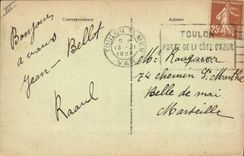 Correspondance
Adresse
TOULON S MER
VAR
TOULON
PORTE DE LA CÔTE D'AZUR
25
Bonjour
a vous
Jean - Bellot
Raoul
M.
74 chemin Ste Marthe
Belle de mai
Marseille